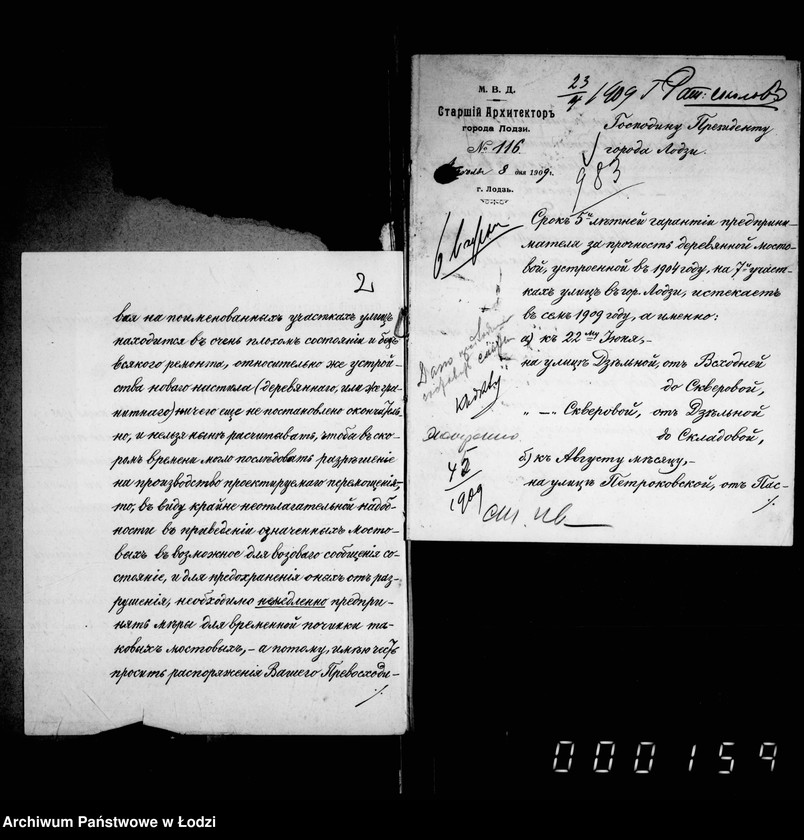 2
вая на поименованныхъ участкахъ улицъ
находится въ очень плохомъ состояніи и безъ
всякаго ремонта, относительно же устрой-
ства новаго настила (деревяннаго, или же гра-
нитнаго) ничего еще не постановлено окончатель-
но, и нельзя нынѣ расчитывать, чтобъ въ ско-
ромъ времени могло послѣдовать разрѣшеніе
на производство проектируемаго перемощенія,-
то, въ виду крайне неотлагательной надоб-
ности въ приведеніи означенныхъ мосто-
выхъ въ возможное для возоваго сообщенія со-
стояніе, и для предохраненія оныхъ отъ раз-
рушенія, необходимо немедленно предпри-
нять мѣры для временной починки та-
ковыхъ мостовыхъ,- а потому, имѣю честь
просить распоряженія Вашего Превосходи-
./.
М. В. Д.
Старшій Архитекторъ
города Лодзи.
№ 116
8 дня 1909 г.
г. Лодзь.
23/4 1909 г
Господину Президенту
города Лодзи.
983
Срокъ 5и лѣтней гарантіи предприни-
мателя за прочность деревянной мосто-
вой, устроенной въ 1904 году, на 7и участ-
кахъ улицъ въ гор. Лодзи, истекаетъ
въ семъ 1909 году, а именно:
а) къ 22му Іюня,-
на улицѣ Дзѣльной, отъ Всходней
до Скверовой,
„ -„- Скверовой, отъ Дзѣльной
до Складовой,
б) къ Августу мѣсяцу,-
на улицѣ Петроковской, отъ Пас-
./.
1909
000159
Archiwum Państwowe w Łodzi